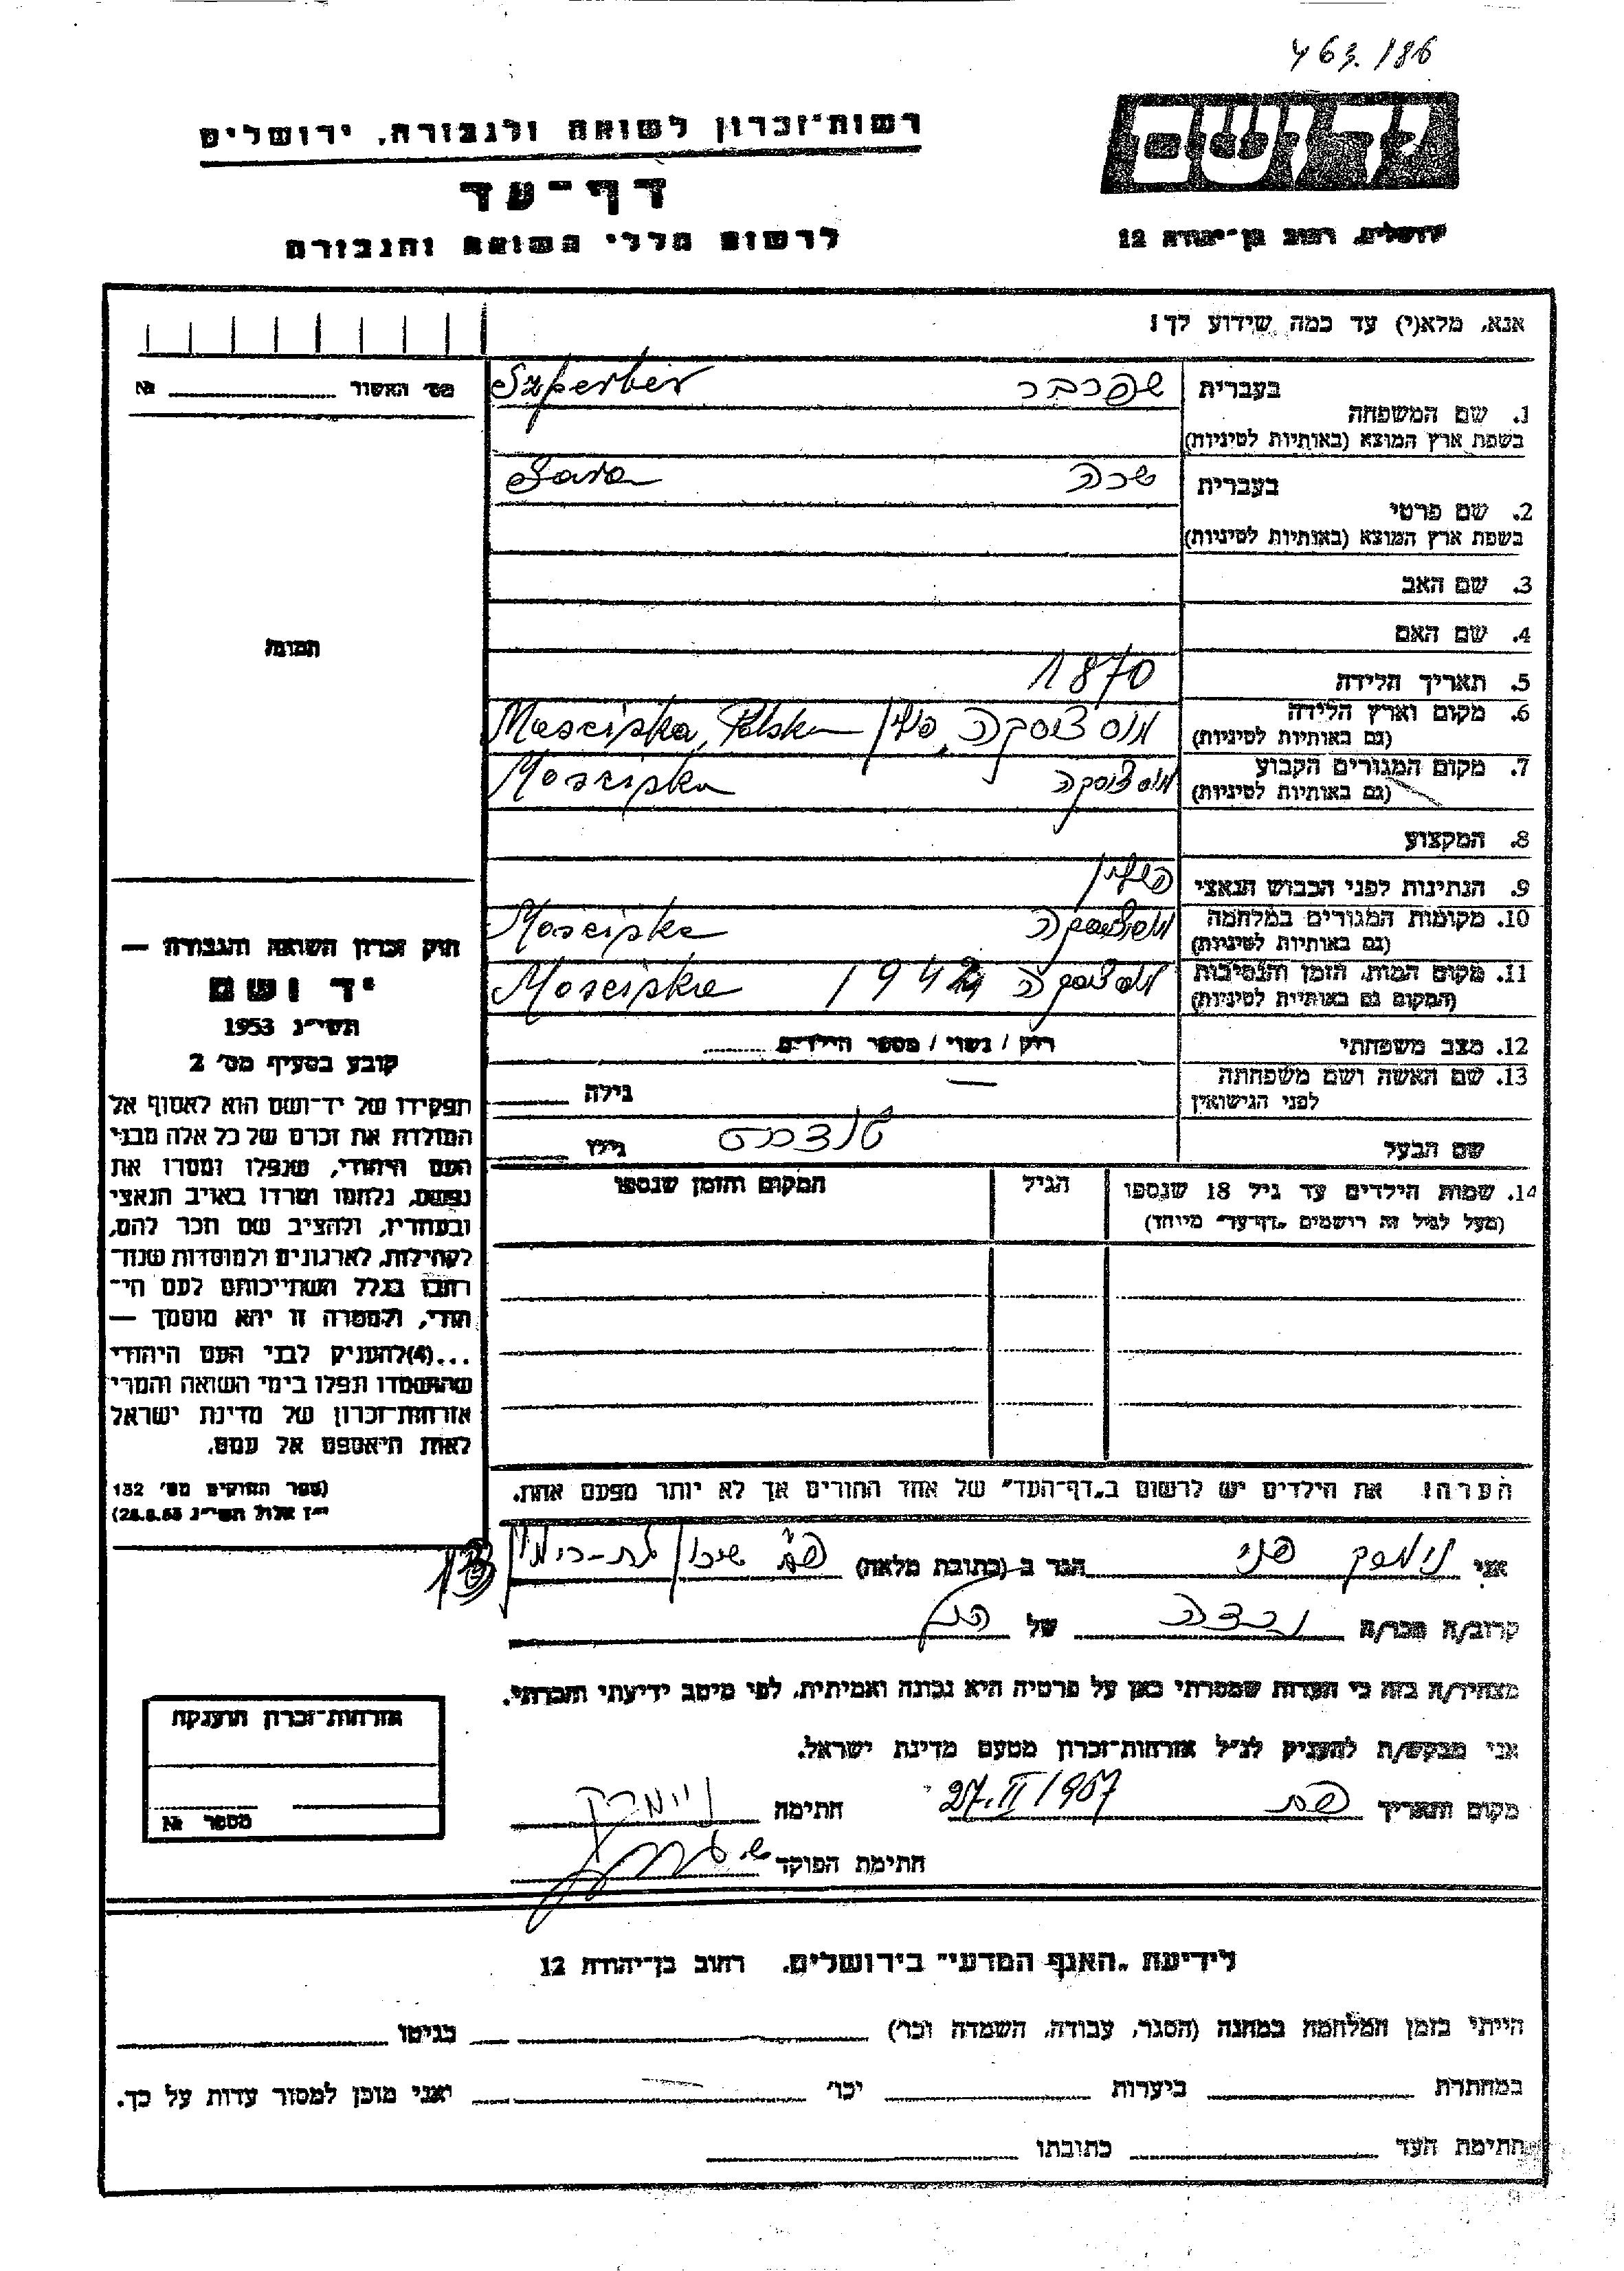 463.186
יד ושם
רשות־זכרון לשואה ולגבורה, ירושלים
דף־עד
לרשום חללי השואה והגבורה
ירושלים, רחוב בן־יהודה 12
אנא, מלא(י) עד כמה שידוע לך!
מס' האשור №
בעברית שפרבר Szperber
1. שם המשפחה
בשפת ארץ המוצא (באותיות לטיניות)
בעברית שרה Sara
2. שם פרטי
בשפת ארץ המוצא (באותיות לטיניות)
3. שם האב
4. שם האם
תמונה
5. תאריך הלידה 1870
6. מקום וארץ הלידה
(גם באותיות לטיניות) מוסציסקה, פולין Mosciska, Polska
7. מקום המגורים הקבוע
(גם באותיות לטיניות) מוסציסקה Mosciska
8. המקצוע
9. הנתינות לפני הכבוש הנאצי פולין
10. מקומות המגורים במלחמה
(גם באותיות לטיניות) מוסציסקה Mosciska
11. מקום המות, הזמן והנסיבות
(המקום גם באותיות לטיניות) מוסציסקה 1942 Mosciska
12. מצב משפחתי רווק / נשוי / מספר הילדים
13. שם האשה ושם משפחתה
לפני הנישואין — גילה
שם הבעל גילו
14. שמות הילדים עד גיל 18 שנספו הגיל המקום והזמן שנספו
(מעל לגיל זה רושמים „דף־עד" מיוחד)
חוק זכרון השואה והגבורה —
יד ושם
תשי״ג 1953
קובע בסעיף מס' 2
תפקידו של יד־ושם הוא לאסוף אל
המולדת את זכרם של כל אלה מבני
העם היהודי, שנפלו ומסרו את
נפשם, נלחמו ומרדו באויב הנאצי
ובעוזריו, ולהציב שם וזכר להם,
לקהילות, לארגונים ולמוסדות שנח־
רבו בגלל השתייכותם לעם הי־
הודי, ולמטרה זו יהא מוסמך —
...(4) להעניק לבני העם היהודי
שהושמדו ונפלו בימי השואה והמרי
אזרחות־זכרון של מדינת ישראל
לאות היאספם אל עמם.
(ספר החוקים מס' 132
י״ז אלול תשי״ג 28.8.53)
הערה: את הילדים יש לרשום ב„דף־העד" של אחד ההורים אך לא יותר מפעם אחת.
אני פני הגר ב (כתובת מלאה) שיכון
קרוב/ה מכר/ה נכדה של
מצהיר/ה בזה כי העדות שמסרתי כאן על פרטיה היא נכונה ואמיתית, לפי מיטב ידיעתי והכרתי.
אני מבקש/ת להעניק לנ״ל אזרחות־זכרון מטעם מדינת ישראל.
מקום ותאריך 27.II/1957 חתימה
חתימת הפוקד
אזרחות־זכרון הוענקה
מספר №
לידיעת „האגף המדעי" בירושלים, רחוב בן־יהודה 12
הייתי בזמן המלחמה במחנה (הסגר, עבודה, השמדה וכו') בגיטו
במחתרת ביערות וכו' ואני מוכן למסור עדות על כך.
חתימת העד כתובתו